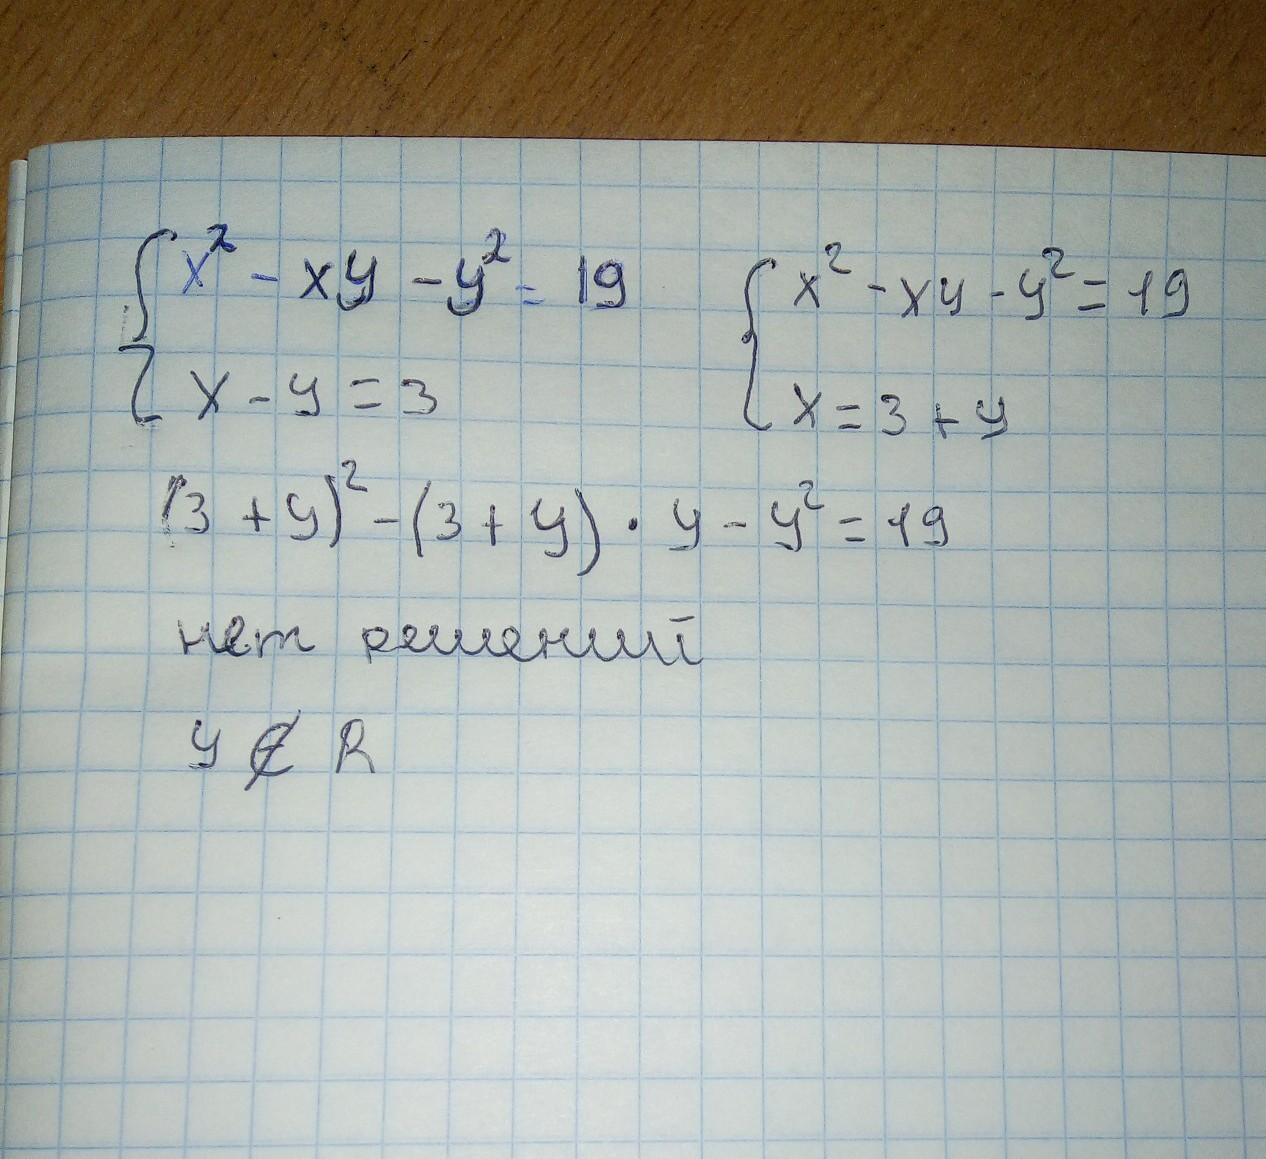 x² - xy - y² = 19
x - y = 3
x² - xy - y² = 19
x = 3 + y
(3 + y)² - (3 + y) · y - y² = 19
нет решений
y ∉ R